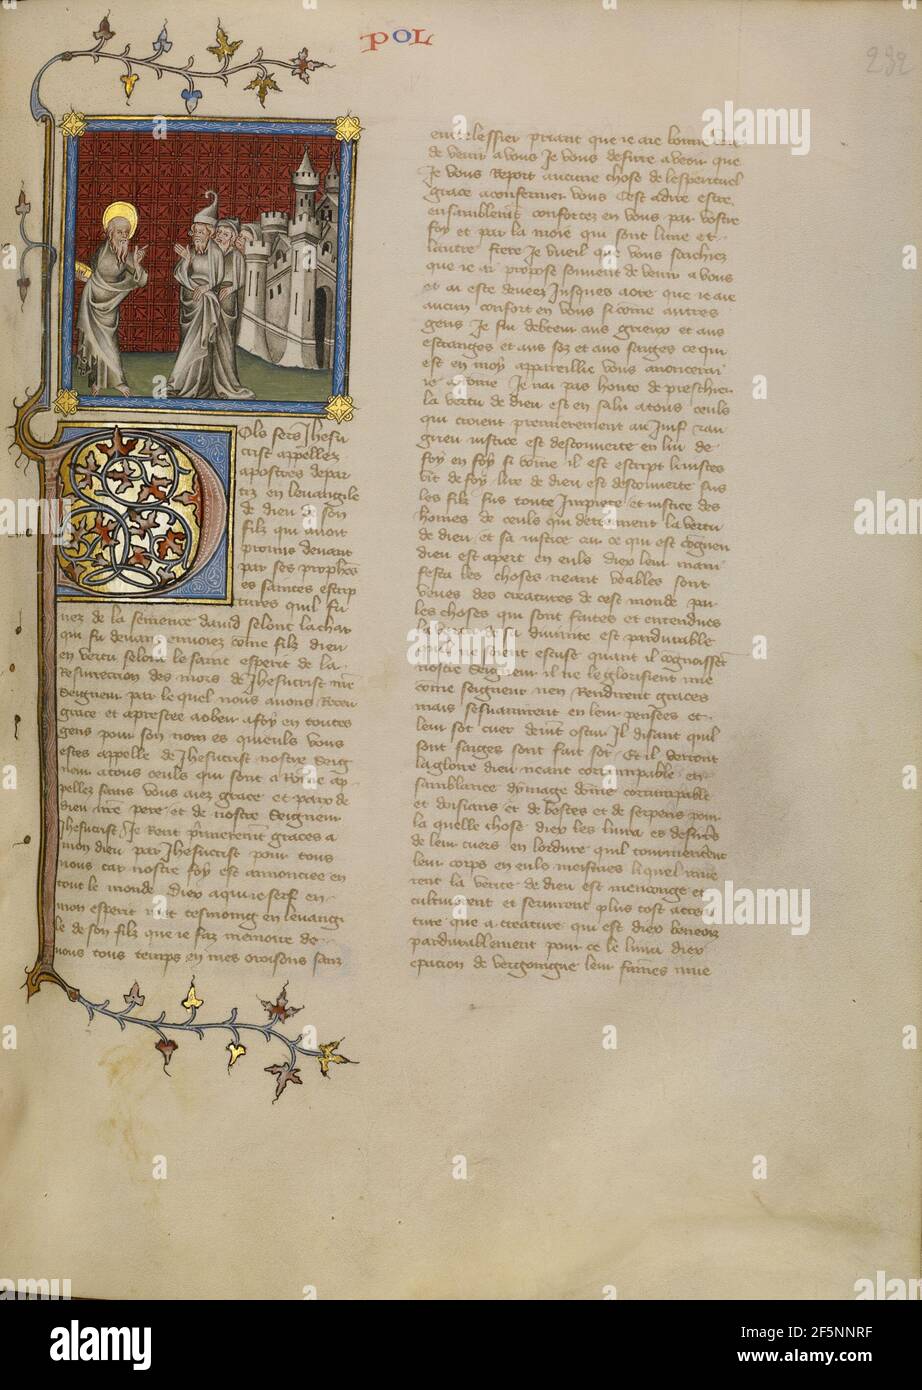 POL
232
Pols sers Jhesu
crist appellez
apostres depar
tiz en leuangile
de dieu de son
filz qui auoit
promis deuant
par ses prophetes
es saintes escrip
tures quil fu
nez de la semence dauid selonc la char
qui fu deuant enuoiez come filz dieu
en vertu selonc le saint esperit de la
Resurrection des mors de Jhesucrist nre
seigneur par le quel nous auons Receu
grace et apostree a obeir a foy en toutes
gens pour son nom es queuls vous
estes appelle de Jhesucrist nostre seig
neur a tous ceuls qui sont a Rome ap
pellez sains vous aiez grace et paix de
dieu nre pere et de nostre seigneur
Jhesucrist Je Rent primerent graces a
mon dieu par Jhesucrist pour tous
vous car vostre foy est annonciee en
tout le monde Diex a qui ie serf en
mon esperit met tesmoing en leuangi
le de son filz que ie faz memoire de
vous tous temps en mes oroisons sanz
entrelessier priant que ie aie bonne voie
de venir a vous Je vous desirre a veoir que
Je vous Report aucune chose de lesperituel
grace a confermer vous Cest adire estre
ensamblement confortez en vous par vostre
foy et par la moie qui sont lune et
lautre frere Je vueil que vous sachiez
que ie ai propose souuent de venir a vous
et ai este deueez Jusques a ore que ie aie
aucun confort en vous si come autres
gens Je sui detteur aus grieux et aus
estranges et aus sos et aus saiges ce qui
est en moy appareillie vous anoncerai
ie a rome Je nai pas honte de preschier
la vertu de dieu est en salu a tous ceuls
qui croient premierement au Juif
grieu iustice est descouuerte en lui de
foy en foy si come il est escript li iustes
vit de foy lire de dieu est descouuerte sus
les filz sus toute Impiete et iustice des
homes de ceuls qui detiennent la vertu
de dieu et sa iustice car ce qui est cogneu
dieu est apert en euls diex leur mani
festa les choses neant veables sont
veues des creatures de cest monde par
les choses qui sont faites et entendues
la vertu de sa diuinite est pardurable
quil ne soient escuse quant il cognoissent
nostre seigneur il ne le glorifient mie
come seigneur nen Rendirent graces
mais sesuanuirent en leur pensees et
leur sot cuer deuint oscur Il disant quil
sont saiges sont fait sot Et il
la gloire dieu neant corrumpable en
samblance dymage dome corrumpable
et doisiaus et de bestes et de serpens pour
la quelle chose diex les liura es desirres
de leur cuers en lordure quil
leur corps en euls meismes li quel mue
rent la verite de dieu est mencongne et
cultiuerent et seruirent plus tost a crea
ture que a creature qui est diex beneoiz
pardurablement pour ce le liura diex
de vergoingne leur fames mue
alamy
Image ID: 2F5NNRF
www.alamy.com